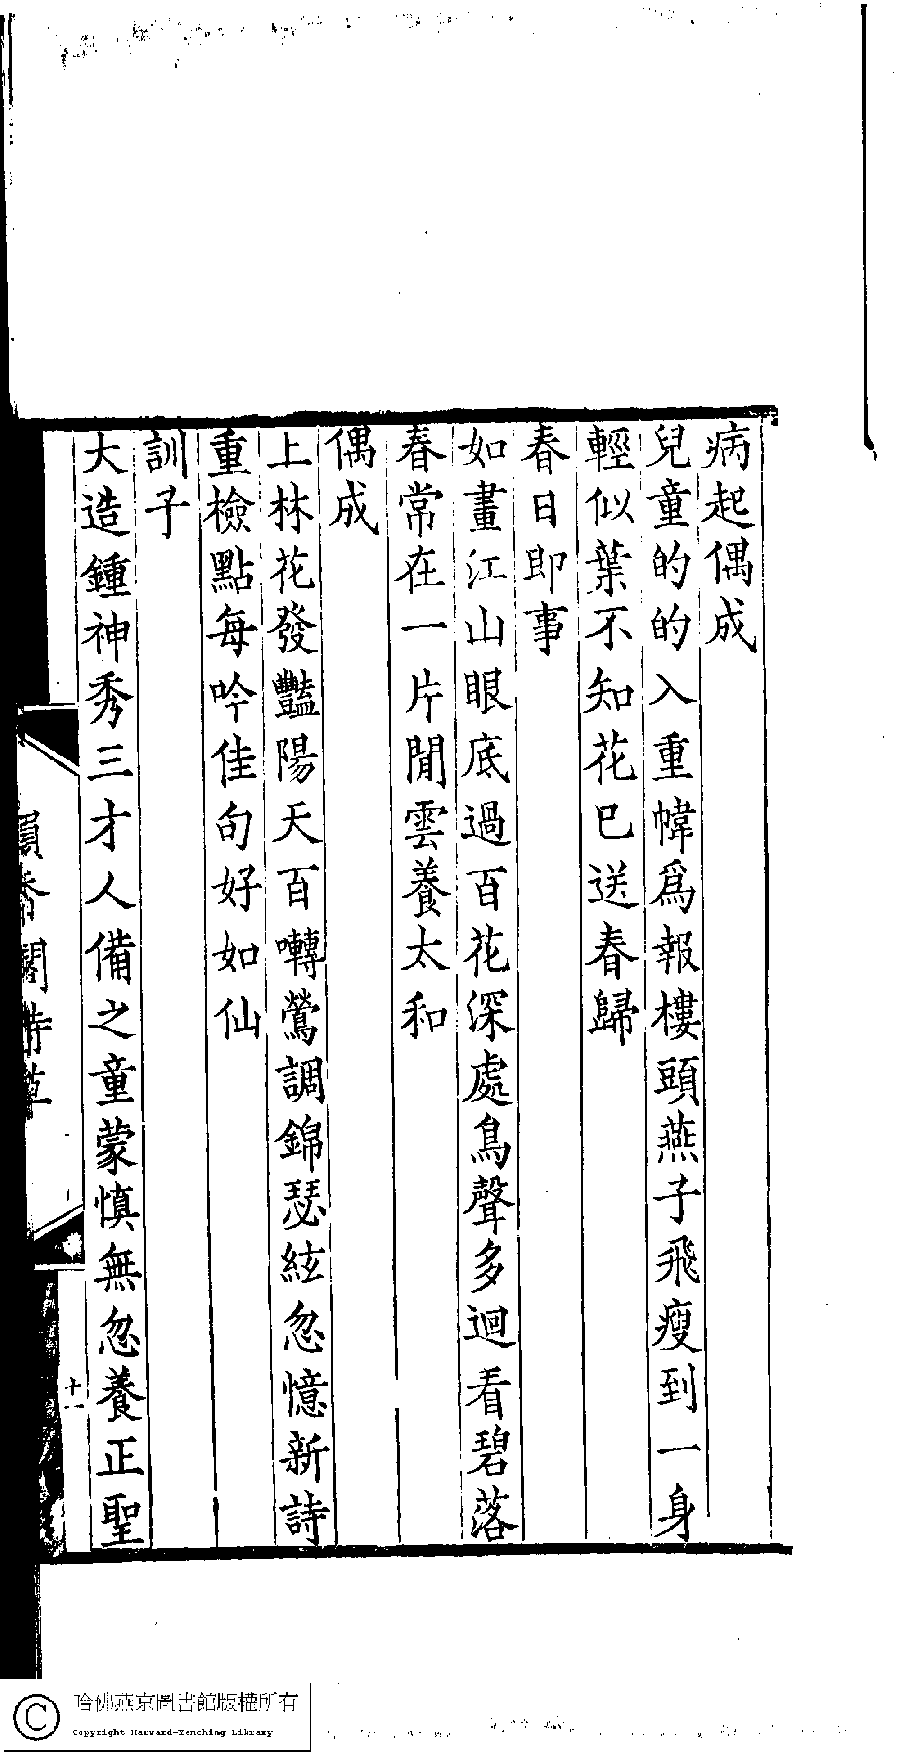 病起偶成
兒童的的入重幃爲報樓頭燕子飛瘦到一身
輕似葉不知花已送春歸
春日即事
如畫江山眼底過百花深處鳥聲多迴看碧落
春常在一片閒雲養太和
偶成
上林花發豔陽天百囀鶯調錦瑟絃忽憶新詩
重檢點每吟佳句好如仙
訓子
大造鍾神秀三才人備之童蒙慎無忽養正聖
十一
哈佛燕京圖書館版權所有
Copyright Harvard-Yenching Library